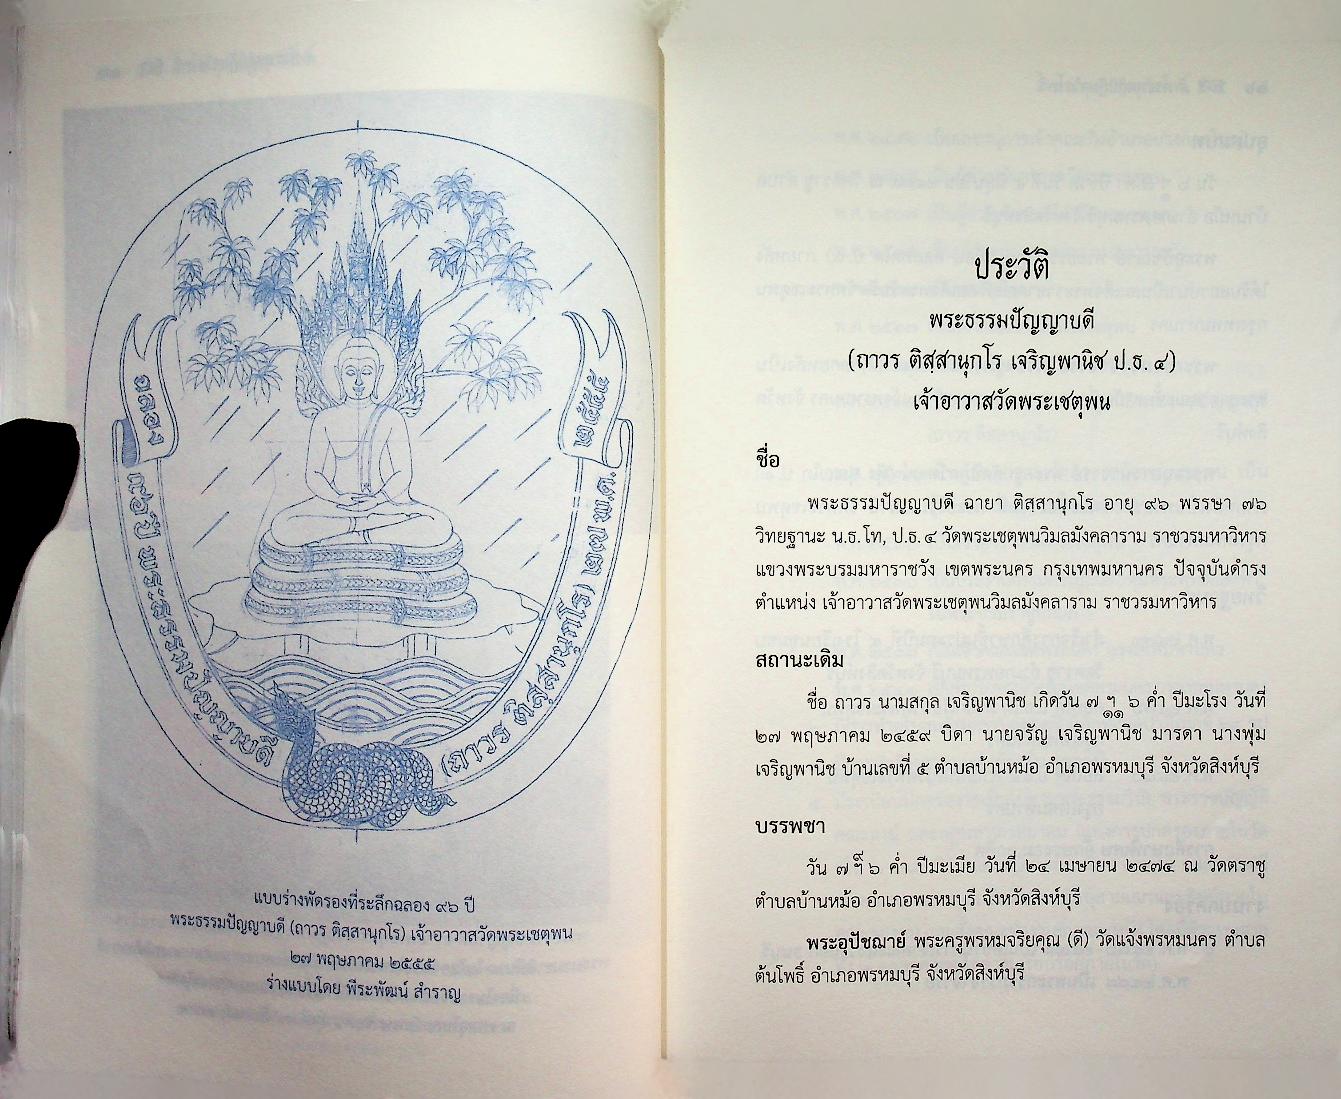 ฉลอง
๙๖ ปี พระธรรมปัญญาบดี
(ถาวร ติสฺสานุกโร)
แบบร่างพัดรองที่ระลึกฉลอง ๙๖ ปี
พระธรรมปัญญาบดี (ถาวร ติสฺสานุกโร) เจ้าอาวาสวัดพระเชตุพน
๒๗ พฤษภาคม ๒๕๕๕
ร่างแบบโดย พีระพัฒน์ สำราญ
ประวัติ
พระธรรมปัญญาบดี
(ถาวร ติสฺสานุกโร เจริญพานิช ป.ธ. ๔)
เจ้าอาวาสวัดพระเชตุพน
ชื่อ
พระธรรมปัญญาบดี ฉายา ติสฺสานุกโร อายุ ๙๖ พรรษา ๗๖
วิทยฐานะ น.ธ. โท, ป.ธ. ๔ วัดพระเชตุพนวิมลมังคลาราม ราชวรมหาวิหาร
แขวงพระบรมมหาราชวัง เขตพระนคร กรุงเทพมหานคร ปัจจุบันดำรง
ตำแหน่ง เจ้าอาวาสวัดพระเชตุพนวิมลมังคลาราม ราชวรมหาวิหาร
สถานะเดิม
ชื่อ ถาวร นามสกุล เจริญพานิช เกิดวัน ๗ ฯ ๑๑ ๖ ค่ำ ปีมะโรง วันที่
๒๗ พฤษภาคม ๒๔๕๙ บิดา นายจรัญ เจริญพานิช มารดา นางพุ่ม
เจริญพานิช บ้านเลขที่ ๕ ตำบลบ้านหม้อ อำเภอพรหมบุรี จังหวัดสิงห์บุรี
บรรพชา
วัน ๗ ๙ ฯ ๖ ค่ำ ปีมะเมีย วันที่ ๒๔ เมษายน ๒๔๗๔ ณ วัดตราชู
ตำบลบ้านหม้อ อำเภอพรหมบุรี จังหวัดสิงห์บุรี
พระอุปัชฌาย์ พระครูพรหมจริยคุณ (ดี) วัดแจ้งพรหมนคร ตำบล
ต้นโพธิ์ อำเภอพรหมบุรี จังหวัดสิงห์บุรี